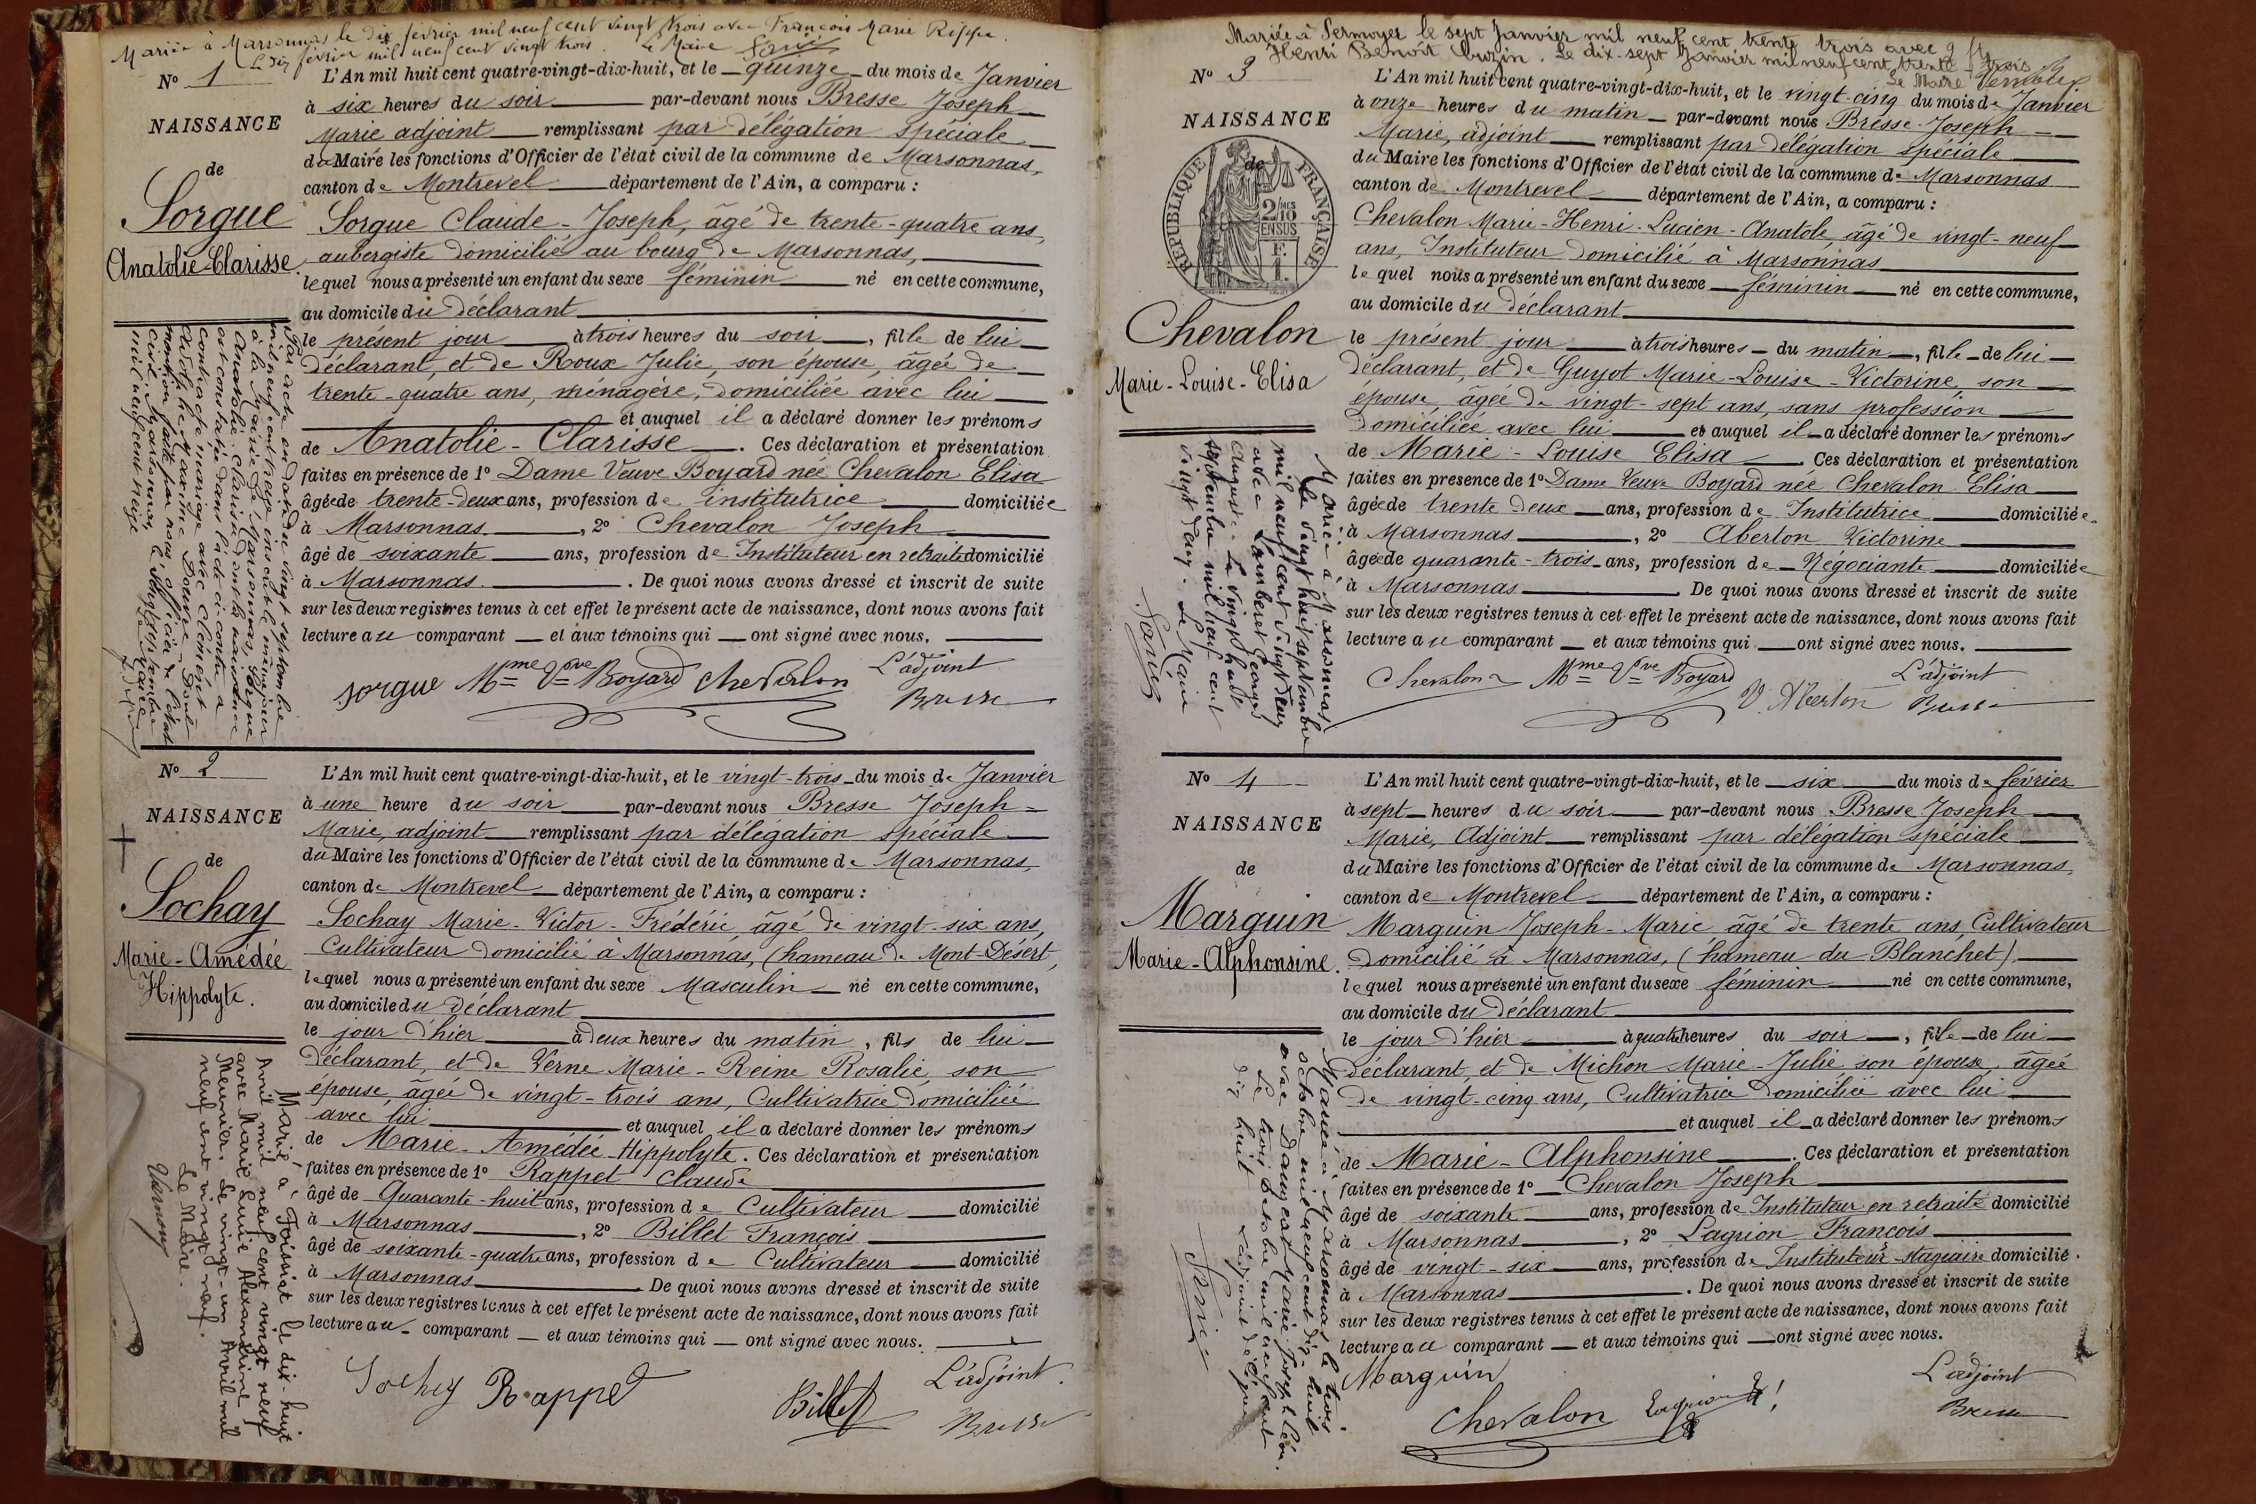 Mariée à Marsonnas le dix février mil neuf cent vingt trois avec François Marie Rippe.
Le dix février mil neuf cent vingt trois. Le Maire
No 1
NAISSANCE
de
Sorgue
Anatolie-Clarisse.
L'An mil huit cent quatre-vingt-dix-huit, et le quinze du mois de Janvier
à six heures du soir par-devant nous Bresse Joseph
Marie adjoint remplissant par délégation spéciale
du Maire les fonctions d'Officier de l'état civil de la commune de Marsonnas,
canton de Montrevel département de l'Ain, a comparu :
Sorgue Claude-Joseph, âgé de trente-quatre ans,
aubergiste domicilié au bourg de Marsonnas,
lequel nous a présenté un enfant du sexe féminin né en cette commune,
au domicile du déclarant
le présent jour à trois heures du soir, fille de lui
déclarant, et de Roux Julie, son épouse, âgée de
trente-quatre ans, ménagère, domiciliée avec lui
et auquel il a déclaré donner les prénoms
de Anatolie-Clarisse. Ces déclaration et présentation
faites en présence de 1o Dame Veuve Boyard née Chevalon Elisa
âgée de trente-deux ans, profession de institutrice domiciliée
à Marsonnas, 2o Chevalon Joseph
âgé de soixante ans, profession de Instituteur en retraite domicilié
à Marsonnas. De quoi nous avons dressé et inscrit de suite
sur les deux registres tenus à cet effet le présent acte de naissance, dont nous avons fait
lecture au comparant et aux témoins qui ont signé avec nous.
Sorgue Mme Vve Boyard Chevalon L'adjoint
Bresse
Par acte en date du vingt septembre
mil neuf cent treize inscrit le même jour
à la Mairie de Marsonnas, Sorgue
Anatolie Clarisse dont la naissance
est constatée dans l'acte ci-contre a
contracté mariage avec Clément
mention faite par nous, officier de l'état
civil, Marsonnas, le vingt septembre
mil neuf cent treize
Le Maire
No 2
NAISSANCE
de
Sochay
Marie-Amédée
Hippolyte.
L'An mil huit cent quatre-vingt-dix-huit, et le vingt-trois du mois de Janvier
à une heure du soir par-devant nous Bresse Joseph
Marie, adjoint remplissant par délégation spéciale
du Maire les fonctions d'Officier de l'état civil de la commune de Marsonnas,
canton de Montrevel département de l'Ain, a comparu :
Sochay Marie-Victor-Frédéric, âgé de vingt-six ans,
Cultivateur domicilié à Marsonnas, (hameau de Mont-Désert,
lequel nous a présenté un enfant du sexe Masculin né en cette commune,
au domicile du déclarant
le jour d'hier à deux heures du matin, fils de lui
déclarant, et de Verne Marie-Reine Rosalie, son
épouse, âgée de vingt-trois ans, Cultivatrice domiciliée
avec lui et auquel il a déclaré donner les prénoms
de Marie-Amédée-Hippolyte. Ces déclaration et présentation
faites en présence de 1o Rappet Claude
âgé de Quarante-huit ans, profession de Cultivateur domicilié
à Marsonnas, 2o Billet François
âgé de soixante-quatre ans, profession de Cultivateur domicilié
à Marsonnas. De quoi nous avons dressé et inscrit de suite
sur les deux registres tenus à cet effet le présent acte de naissance, dont nous avons fait
lecture au comparant et aux témoins qui ont signé avec nous.
Sochay Rappet Billet L'adjoint
Bresse
Marié à Foissiat le dix-huit
Avril mil neuf cent vingt neuf
avec Marie Lucie Alexandrine
Meunier. Le vingt-un Avril mil
neuf cent vingt neuf.
Le Maire.
Mariée à Sermoyer le sept Janvier mil neuf cent trente trois avec
Henri Benoît Cuzin. Le dix-sept Janvier mil neuf cent trente trois
Le Maire
No 3
NAISSANCE
de
RÉPUBLIQUE FRANÇAISE
2/10MES
EN SUS
F.
1.
Chevalon
Marie-Louise-Elisa
L'An mil huit cent quatre-vingt-dix-huit, et le vingt-cinq du mois de Janvier
à onze heures du matin par-devant nous Bresse Joseph
Marie, adjoint remplissant par délégation spéciale
du Maire les fonctions d'Officier de l'état civil de la commune de Marsonnas
canton de Montrevel département de l'Ain, a comparu :
Chevalon Marie-Henri-Lucien-Anatole, âgé de vingt-neuf
ans, Instituteur domicilié à Marsonnas
lequel nous a présenté un enfant du sexe féminin né en cette commune,
au domicile du déclarant
le présent jour à trois heures du matin, fille de lui
déclarant, et de Guyot Marie-Louise-Victorine, son
épouse âgée de vingt-sept ans, sans profession
domiciliée avec lui et auquel il a déclaré donner les prénoms
de Marie-Louise Elisa. Ces déclaration et présentation
faites en présence de 1o Dame Veuve Boyard née Chevalon Elisa
âgée de trente deux ans, profession de Institutrice domiciliée
à Marsonnas, 2o Aberton Victorine
âgée de quarante-trois ans, profession de Négociante domiciliée
à Marsonnas De quoi nous avons dressé et inscrit de suite
sur les deux registres tenus à cet effet le présent acte de naissance, dont nous avons fait
lecture au comparant et aux témoins qui ont signé avec nous.
Chevalon Mme Vve Boyard V. Aberton L'adjoint
Bresse
Mariée à Marsonnas
le vingt huit septembre
mil neuf cent vingt deux
avec Lambert Georges
Auguste. Le vingt huit
septembre mil neuf cent
vingt deux. Le Maire
No 4
NAISSANCE
de
Marguin
Marie-Alphonsine.
L'An mil huit cent quatre-vingt-dix-huit, et le six du mois de février
à sept heures du soir par-devant nous Bresse Joseph
Marie, Adjoint remplissant par délégation spéciale
du Maire les fonctions d'Officier de l'état civil de la commune de Marsonnas,
canton de Montrevel département de l'Ain, a comparu :
Marguin Joseph-Marie âgé de trente ans, Cultivateur
domicilié à Marsonnas, (hameau du Blanchet)
lequel nous a présenté un enfant du sexe féminin né en cette commune,
au domicile du déclarant
le jour d'hier à quatre heures du soir, fille de lui
déclarant, et de Michon Marie-Julie son épouse, âgée
de vingt-cinq ans, Cultivatrice domiciliée avec lui
et auquel il a déclaré donner les prénoms
de Marie-Alphonsine. Ces déclaration et présentation
faites en présence de 1o Chevalon Joseph
âgé de soixante ans, profession de Instituteur en retraite domicilié
à Marsonnas, 2o Lagrion François
âgé de vingt-six ans, profession de Instituteur stagiaire domicilié
à Marsonnas. De quoi nous avons dressé et inscrit de suite
sur les deux registres tenus à cet effet le présent acte de naissance, dont nous avons fait
lecture au comparant et aux témoins qui ont signé avec nous.
Marguin
Chevalon
L'adjoint
Bresse
Mariée à Marsonnas le trois
octobre mil neuf cent dix-huit
avec Marie Joseph Léon.
Le trois octobre mil neuf cent
dix huit L'adjoint délégué